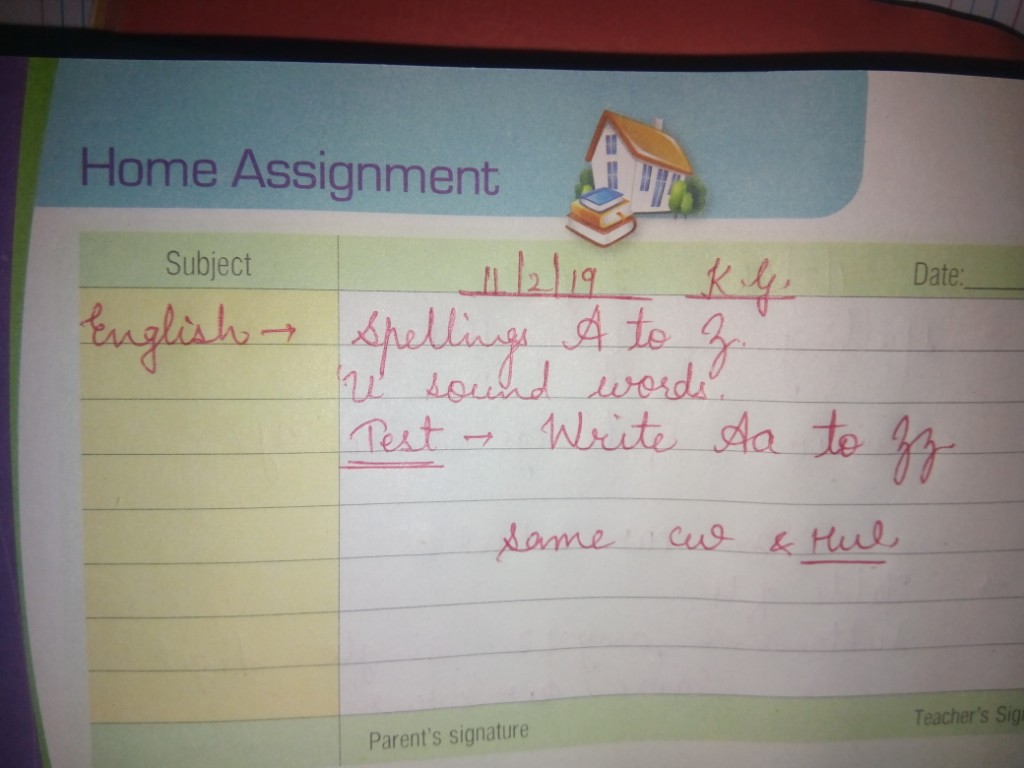 Home Assignment
Subject 11/2/19 K.G. Date:
English → Spellings A to Z.
'U' sound words.
Test → Write Aa to Zz
Same CW & HW
Parent's signature Teacher's Sig